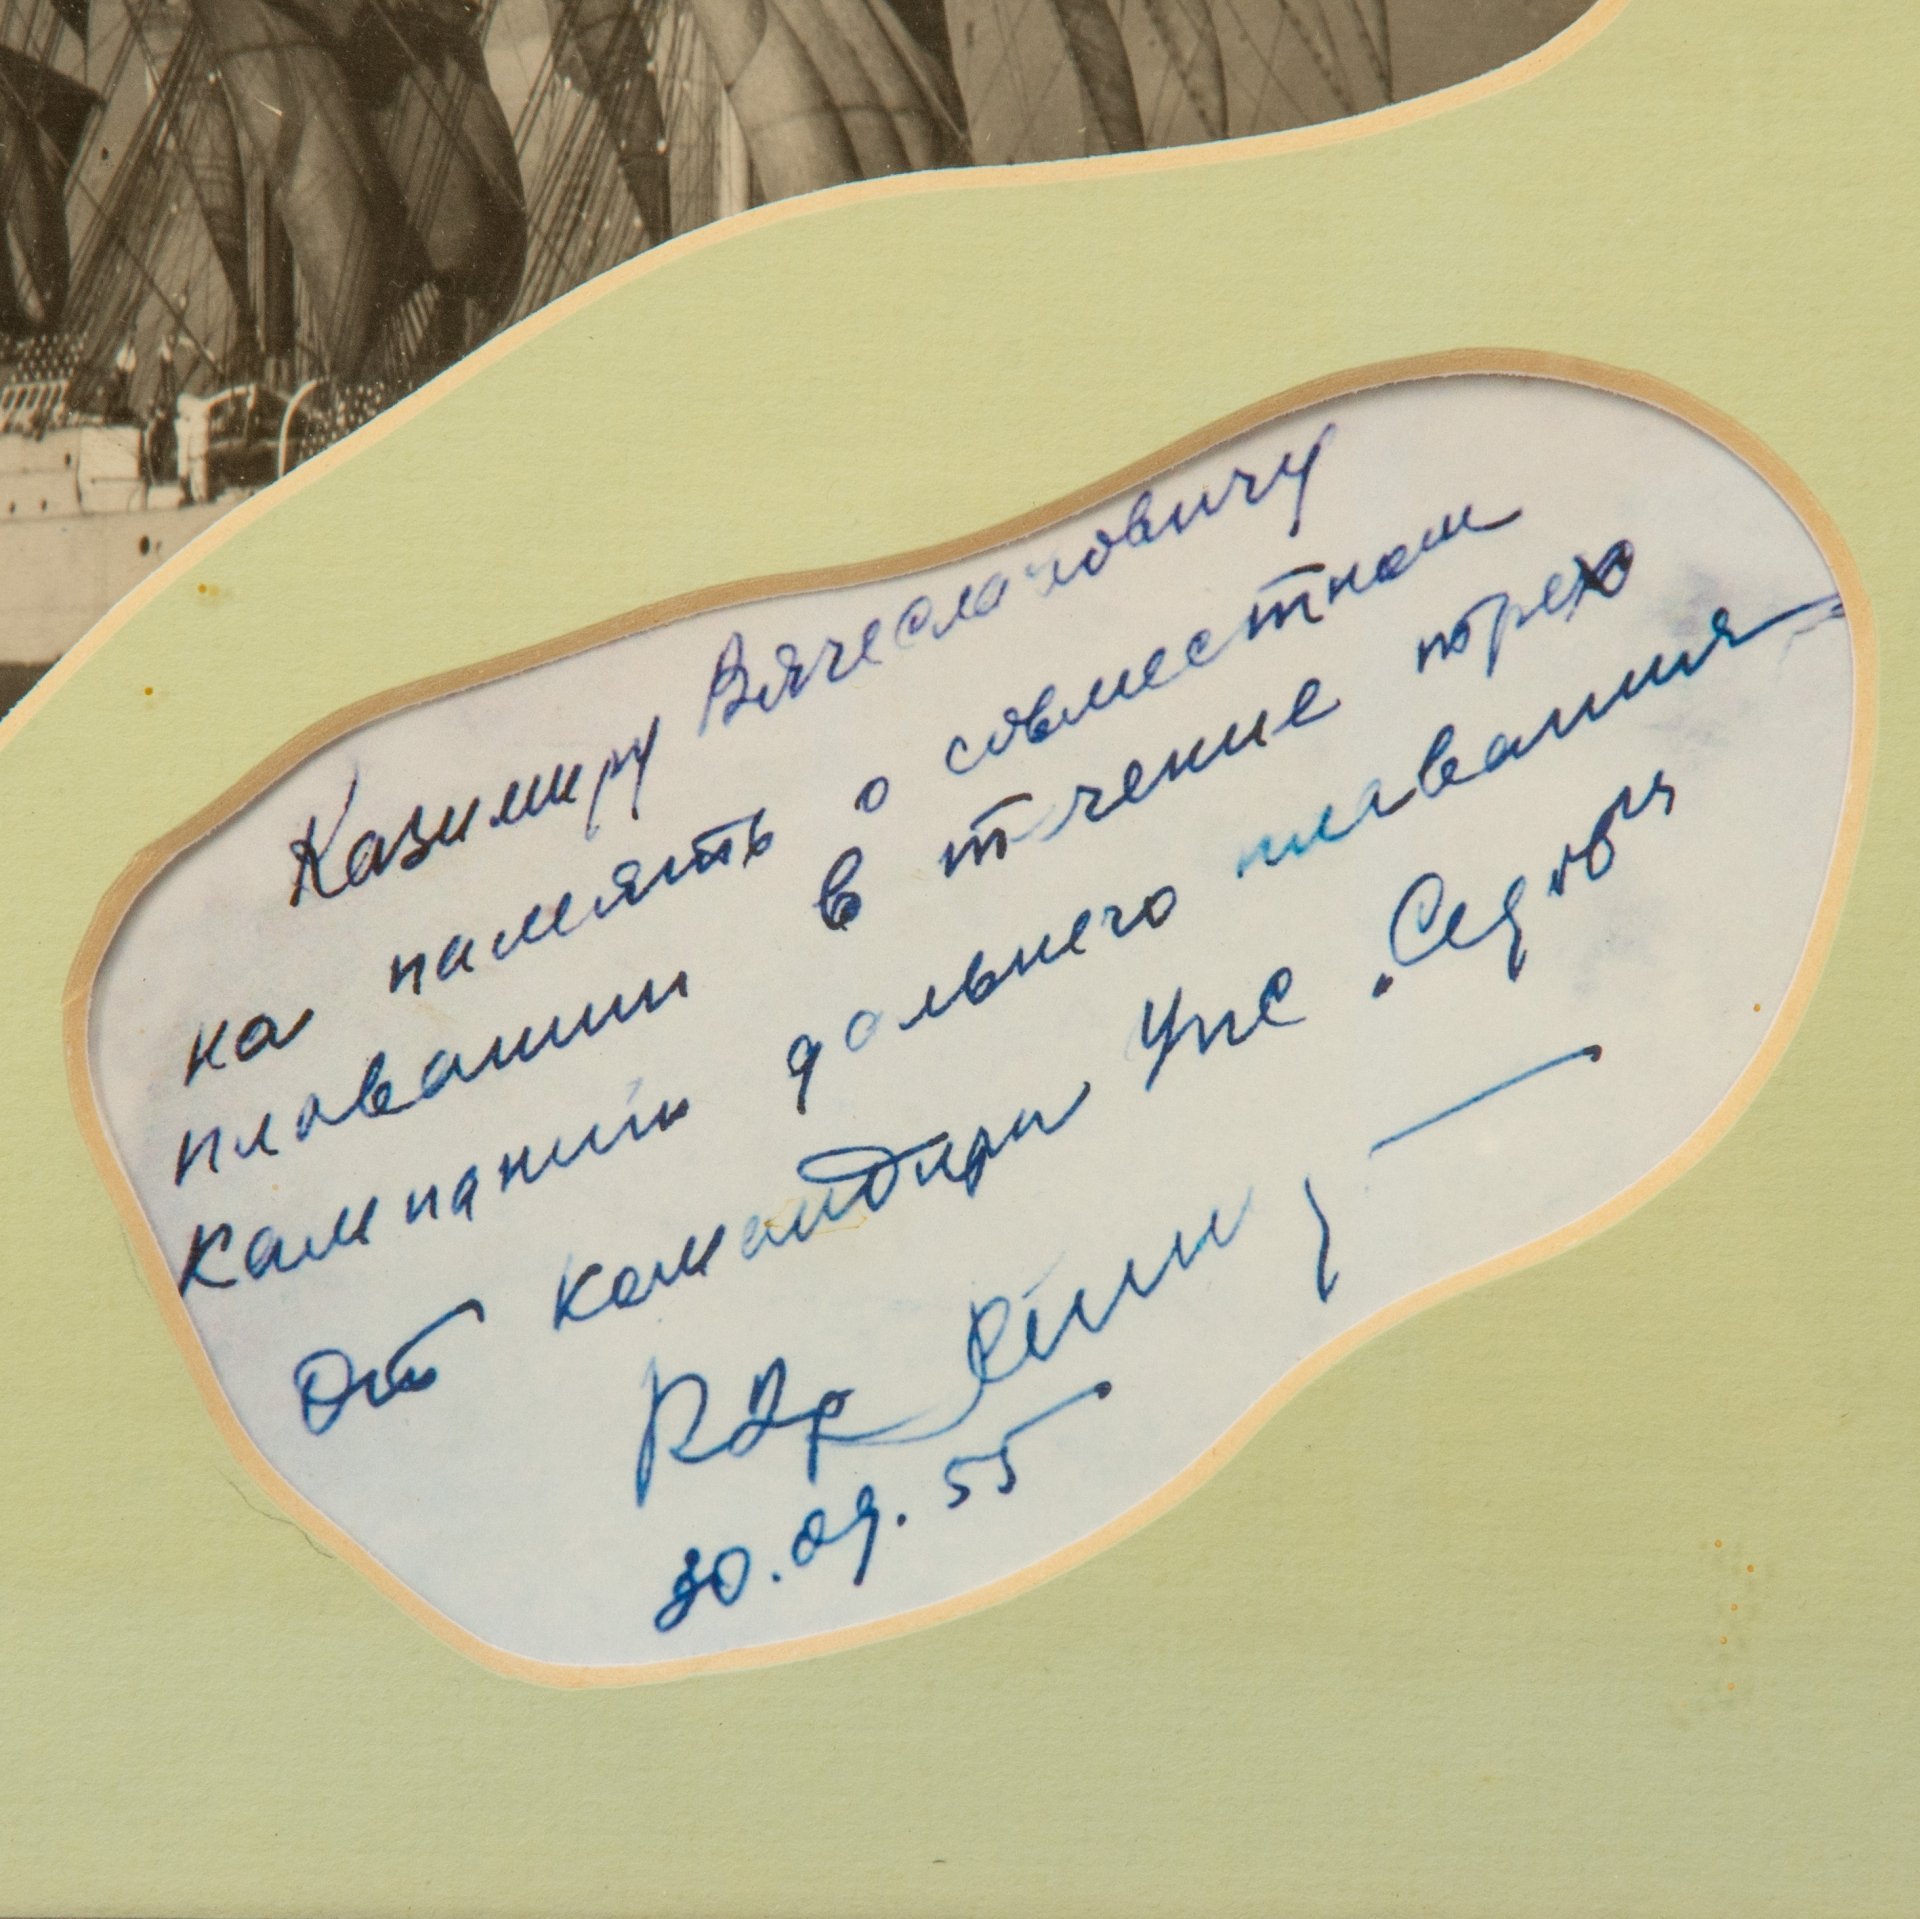 Казимиру Вячеславовичу
на память о совместном
плавании в течение трех
кампаний дальнего плавания
от командира УПС "Седов"
30.09.55